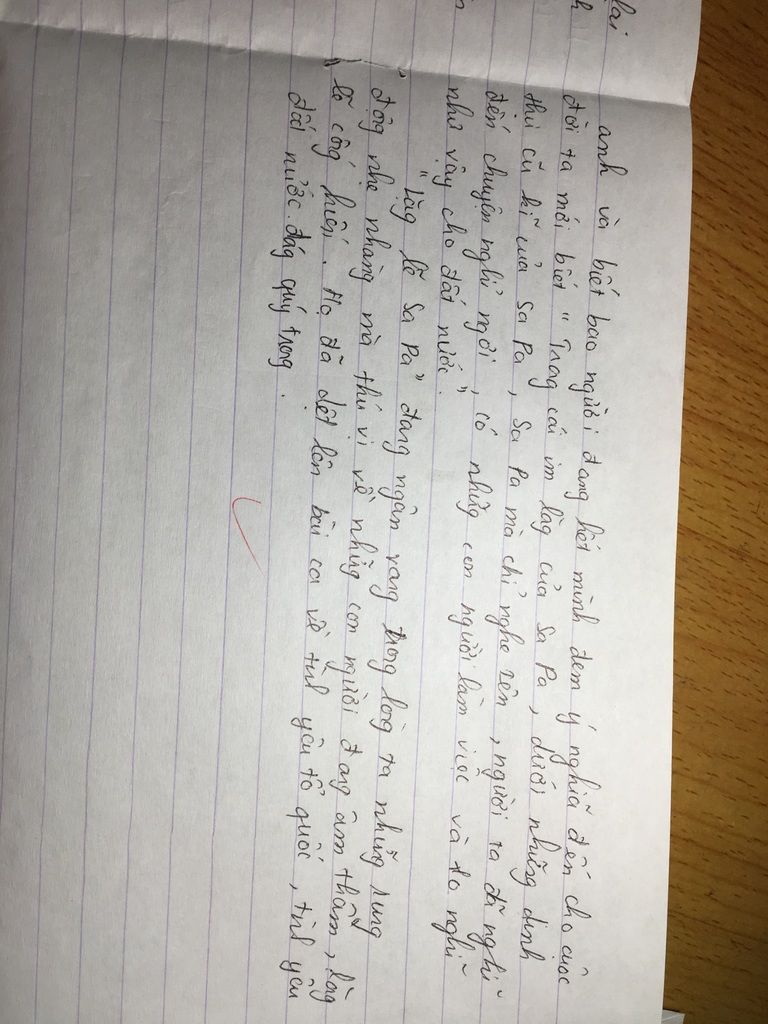 lại
anh và biết bao người đang hết mình đem ý nghĩa đến cho cuộc
đời ta mới biết "Trong cái im lặng của Sa Pa, dưới những dinh
thự cũ kĩ của Sa Pa, Sa Pa mà chỉ nghe tên, người ta đã nghĩ
đến chuyện nghỉ ngơi, có những con người làm việc và lo nghĩ
như vậy cho đất nước".
"Lặng lẽ Sa Pa" đang ngân vang trong lòng ta những rung
động nhẹ nhàng mà thú vị về những con người đang âm thầm, lặng
lẽ cống hiến. Họ đã dệt lên bài ca về tình yêu tổ quốc, tình yêu
đất nước. đáng quý trọng.